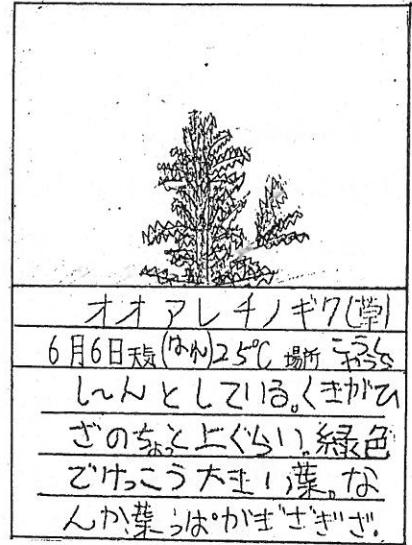 オオアレチノギク(草)
6月6日天気(はれ)25℃ 場所
し〜んとしている。くきがひ
ざのちょっと上ぐらい。緑色
でけっこう大きい葉。な
んか葉っぱがぎざぎざ。